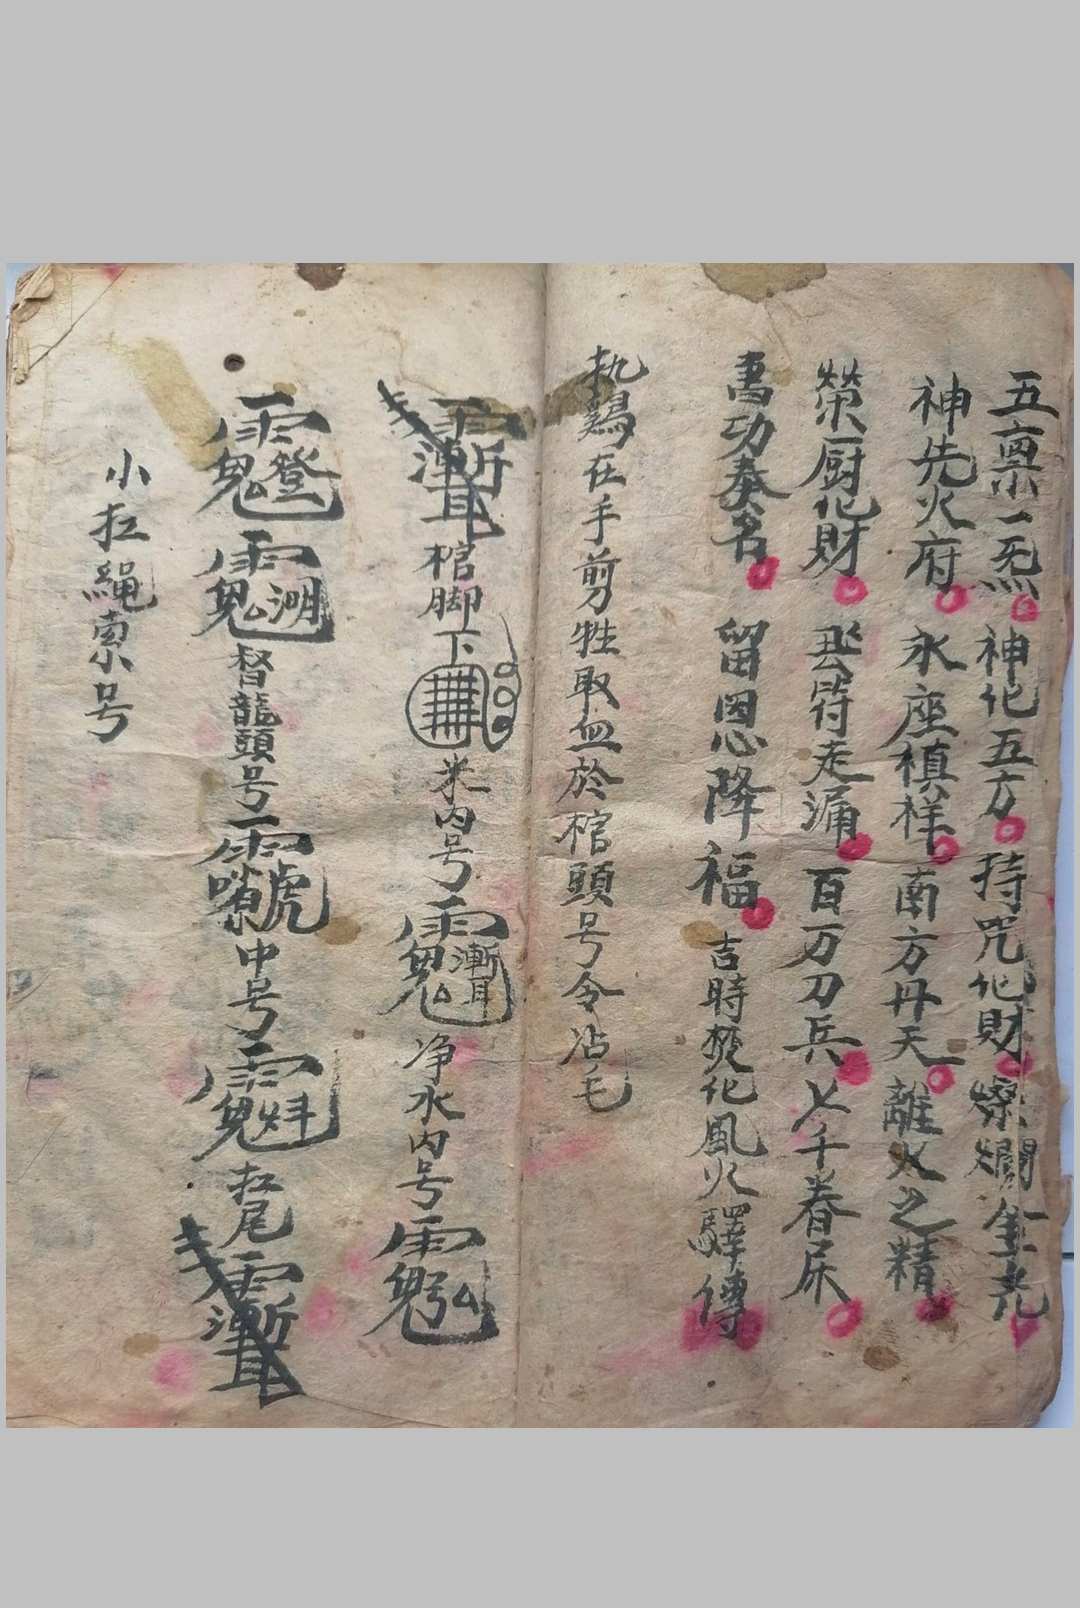 五禀一炁 神化五方 持咒化財 燦爛金光
神先火府 永座槙祥 南方丹天 離火之精
榮厨化財 雲符走漏 百万刀兵 七千眷尿
書功奏名 留恩降福 吉時焚化風火驛傳
执鷄在手剪牲取血於棺頭号令沾毛
棺脚下 米内号 净水内号
督龍頭号 中号 扛尾
小扛繩索号